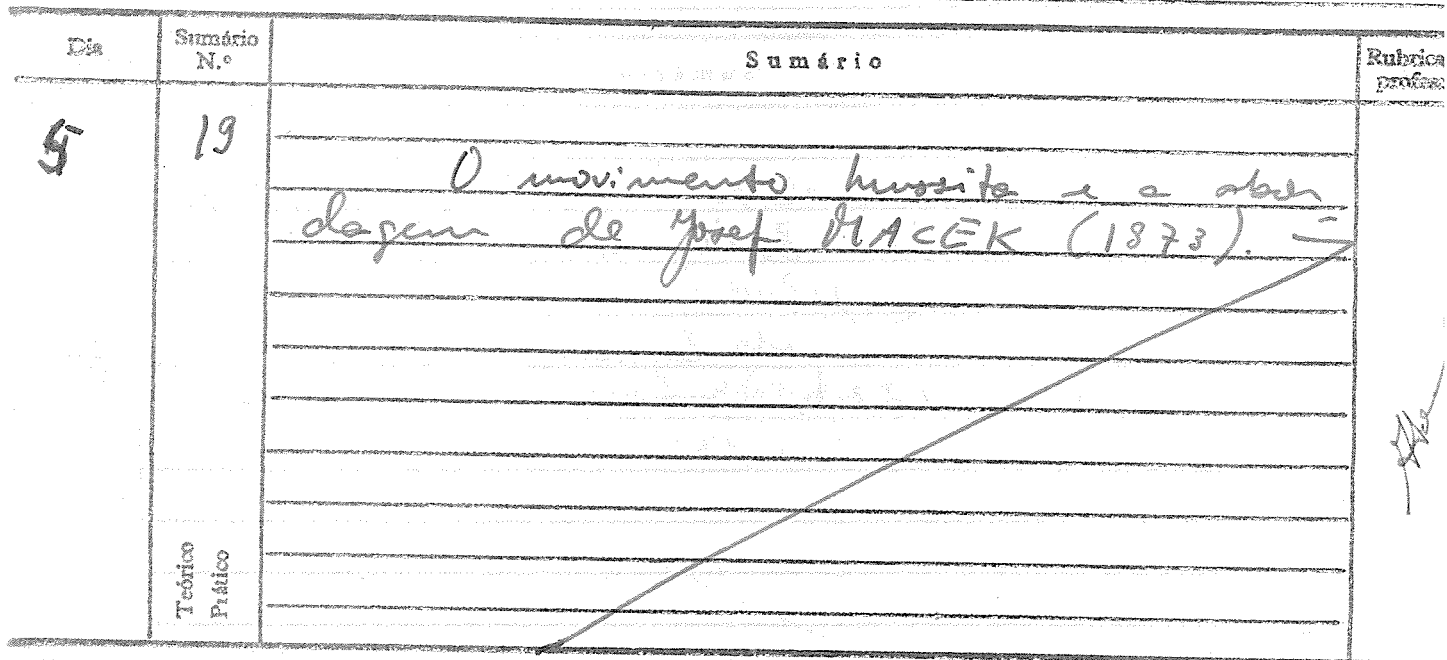 Dia Sumário N.º Sumário Rubrica profess
5 19
O movimento hussita e a abor
dagem de Josef MACEK (1973). =
Teórico
Prático